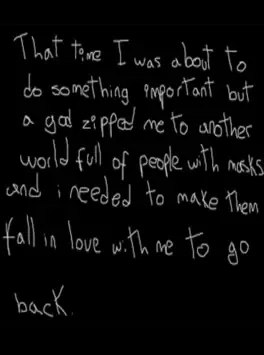 That time I was about to
do something important but
a god zipped me to another
world full of people with masks
and i needed to make them
fall in love with me to go
back.